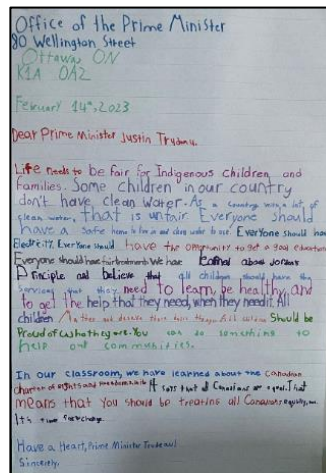 Office of the Prime Minister
80 Wellington Street
Ottawa ON
K1A 0A2
February 14th, 2023
Dear Prime Minister Justin Trudeau,
Life needs to be fair for Indigenous children and
Families. Some children in our country
don't have clean water. As a country with a lot of
clean water, that is unfair. Everyone should
have a safe home to live in and clean water to use. Everyone should have
Electricity. Everyone should have the opportunity to get a good education
Everyone should have fair treatment. We have learned about Jordan's
Principle and believe that all children should have the
services that they need to learn, be healthy, and
to get the help that they need, when they need it. All
children matter and deserve these things. All children should be
Proud of who they are. You can do something to
help out communities.
In our classroom, we have learned about the Canadian
charter of rights and freedoms. It says that all Canadians are equal. That
means that you should be treating all Canadians equally.
It's time for change
Have a Heart, Prime Minister Trudeau!
Sincerely,